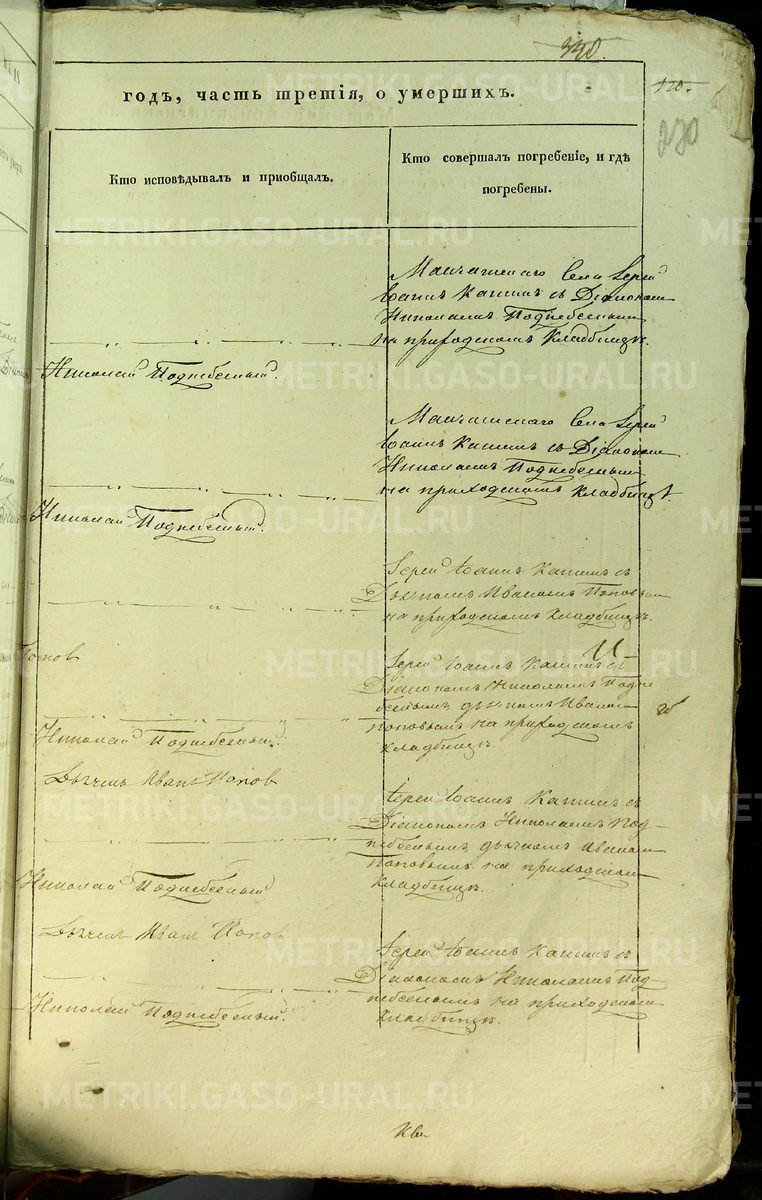 330.
120.
270
годъ, часть третія, о умершихъ.
Кто исповѣдывалъ и пріобщалъ.
Кто совершалъ погребеніе, и гдѣ
погребены.
Села Іерей
Іоаннъ с Діакономъ
Николаемъ Поднебеснымъ
на приходскомъ кладбищѣ.
Николай Поднебесный.
Села Іерей
Іоаннъ съ Діакономъ
Николаемъ Поднебеснымъ
на приходскомъ кладбищѣ
Николай Поднебесный.
Іерей Іоаннъ съ
Дьячкомъ Иваномъ Поповымъ
на приходскомъ кладбищѣ.
Поповъ
Іерей Іоаннъ съ
Діакономъ Николаемъ Подне
беснымъ дьячкомъ Иваномъ
Поповымъ на приходскомъ
кладбищѣ.
Николай Поднебесный.
Дьячекъ Иванъ Поповъ
Іерей Іоаннъ съ
Діакономъ Николаемъ Под-
небеснымъ дьячкомъ Иваномъ
Поповымъ на приходскомъ
кладбищѣ.
Николай Поднебесный
Дьячекъ Иванъ Поповъ
Іерей Іоаннъ съ
Діакономъ Николаемъ Под
небеснымъ на приходскомъ
кладбищѣ.
Николай Поднебесный.
METRIKI.GASO-URAL.RU